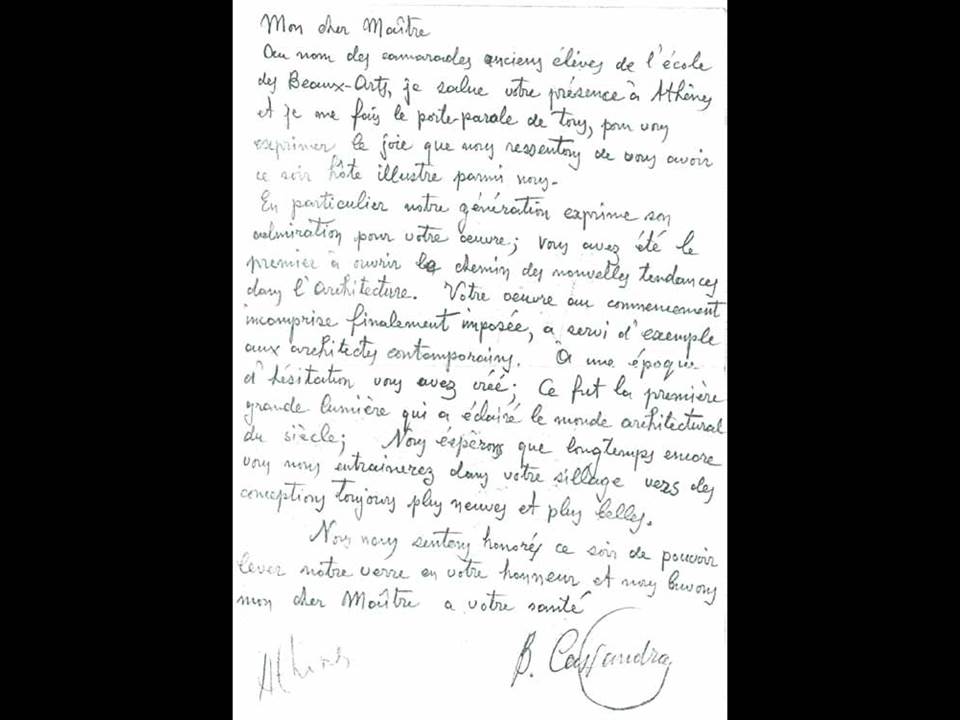 Mon cher Maître
Au nom des camarades anciens élèves de l'école
des Beaux-Arts, je salue votre présence à Athènes
et je me fais le porte-parole de tous, pour vous
exprimer la joie que nous ressentons de vous avoir
ce soir hôte illustre parmi nous.
En particulier notre génération exprime son
admiration pour votre oeuvre; vous avez été le
premier à ouvrir le chemin des nouvelles tendances
dans l'architecture. Votre oeuvre au commencement
incomprise finalement imposée, a servi d'exemple
aux architectes contemporains. À une époque
d'hésitation vous avez créé; Ce fut la première
grande lumière qui a éclairé le monde architectural
du siècle; Nous espérons que longtemps encore
vous nous entrainerez dans votre sillage vers des
conceptions toujours plus neuves et plus belles.
Nous nous sentons honorés ce soir de pouvoir
lever notre verre en votre honneur et nous buvons
mon cher Maître a votre santé
B. Cassandra